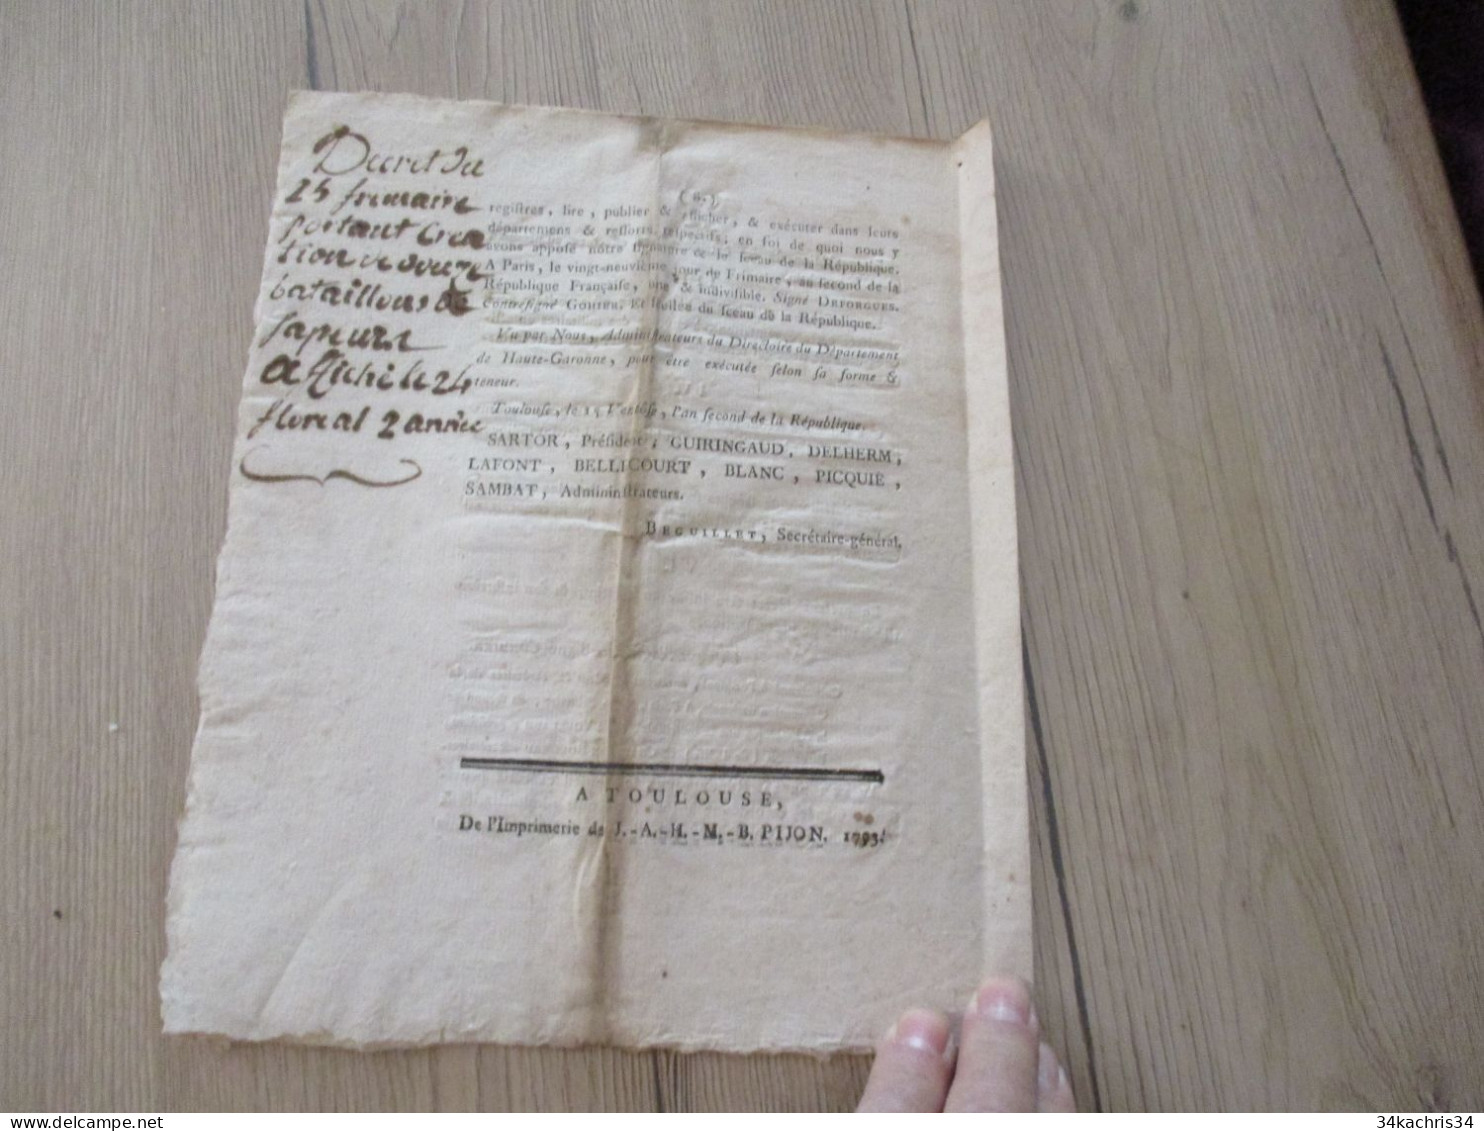 Decret du
25 frimaire
portant Crea
tion de douze
bataillons de
sapeurs
affiché le 24
floreal 2 année
registres, lire, publier & afficher, & exécuter dans leurs
départemens & ressorts respectifs; en foi de quoi nous y
avons apposé notre signature & le sceau de la République.
A Paris, le vingt-neuvième jour de Frimaire, an second de la
République Française, une & indivisible. Signé DEFORGUES.
Contresigné GOHIER. Et scellés du sceau de la République.
Vu par Nous, Administrateurs du Directoire du Département
de Haute-Garonne, pour être exécutée selon sa forme &
teneur.
Toulouse, le 15 Ventôse, l'an second de la République.
SARTOR, Président; GUIRINGAUD, DELHERM,
LAFONT, BELLICOURT, BLANC, PICQUIÉ,
SAMBAT, Admininistrateurs.
BEGUILLET, Secrétaire-général.
A TOULOUSE,
De l'Imprimerie de J.-A.-H.-M.-B. PIJON. 1793.
34kachris34